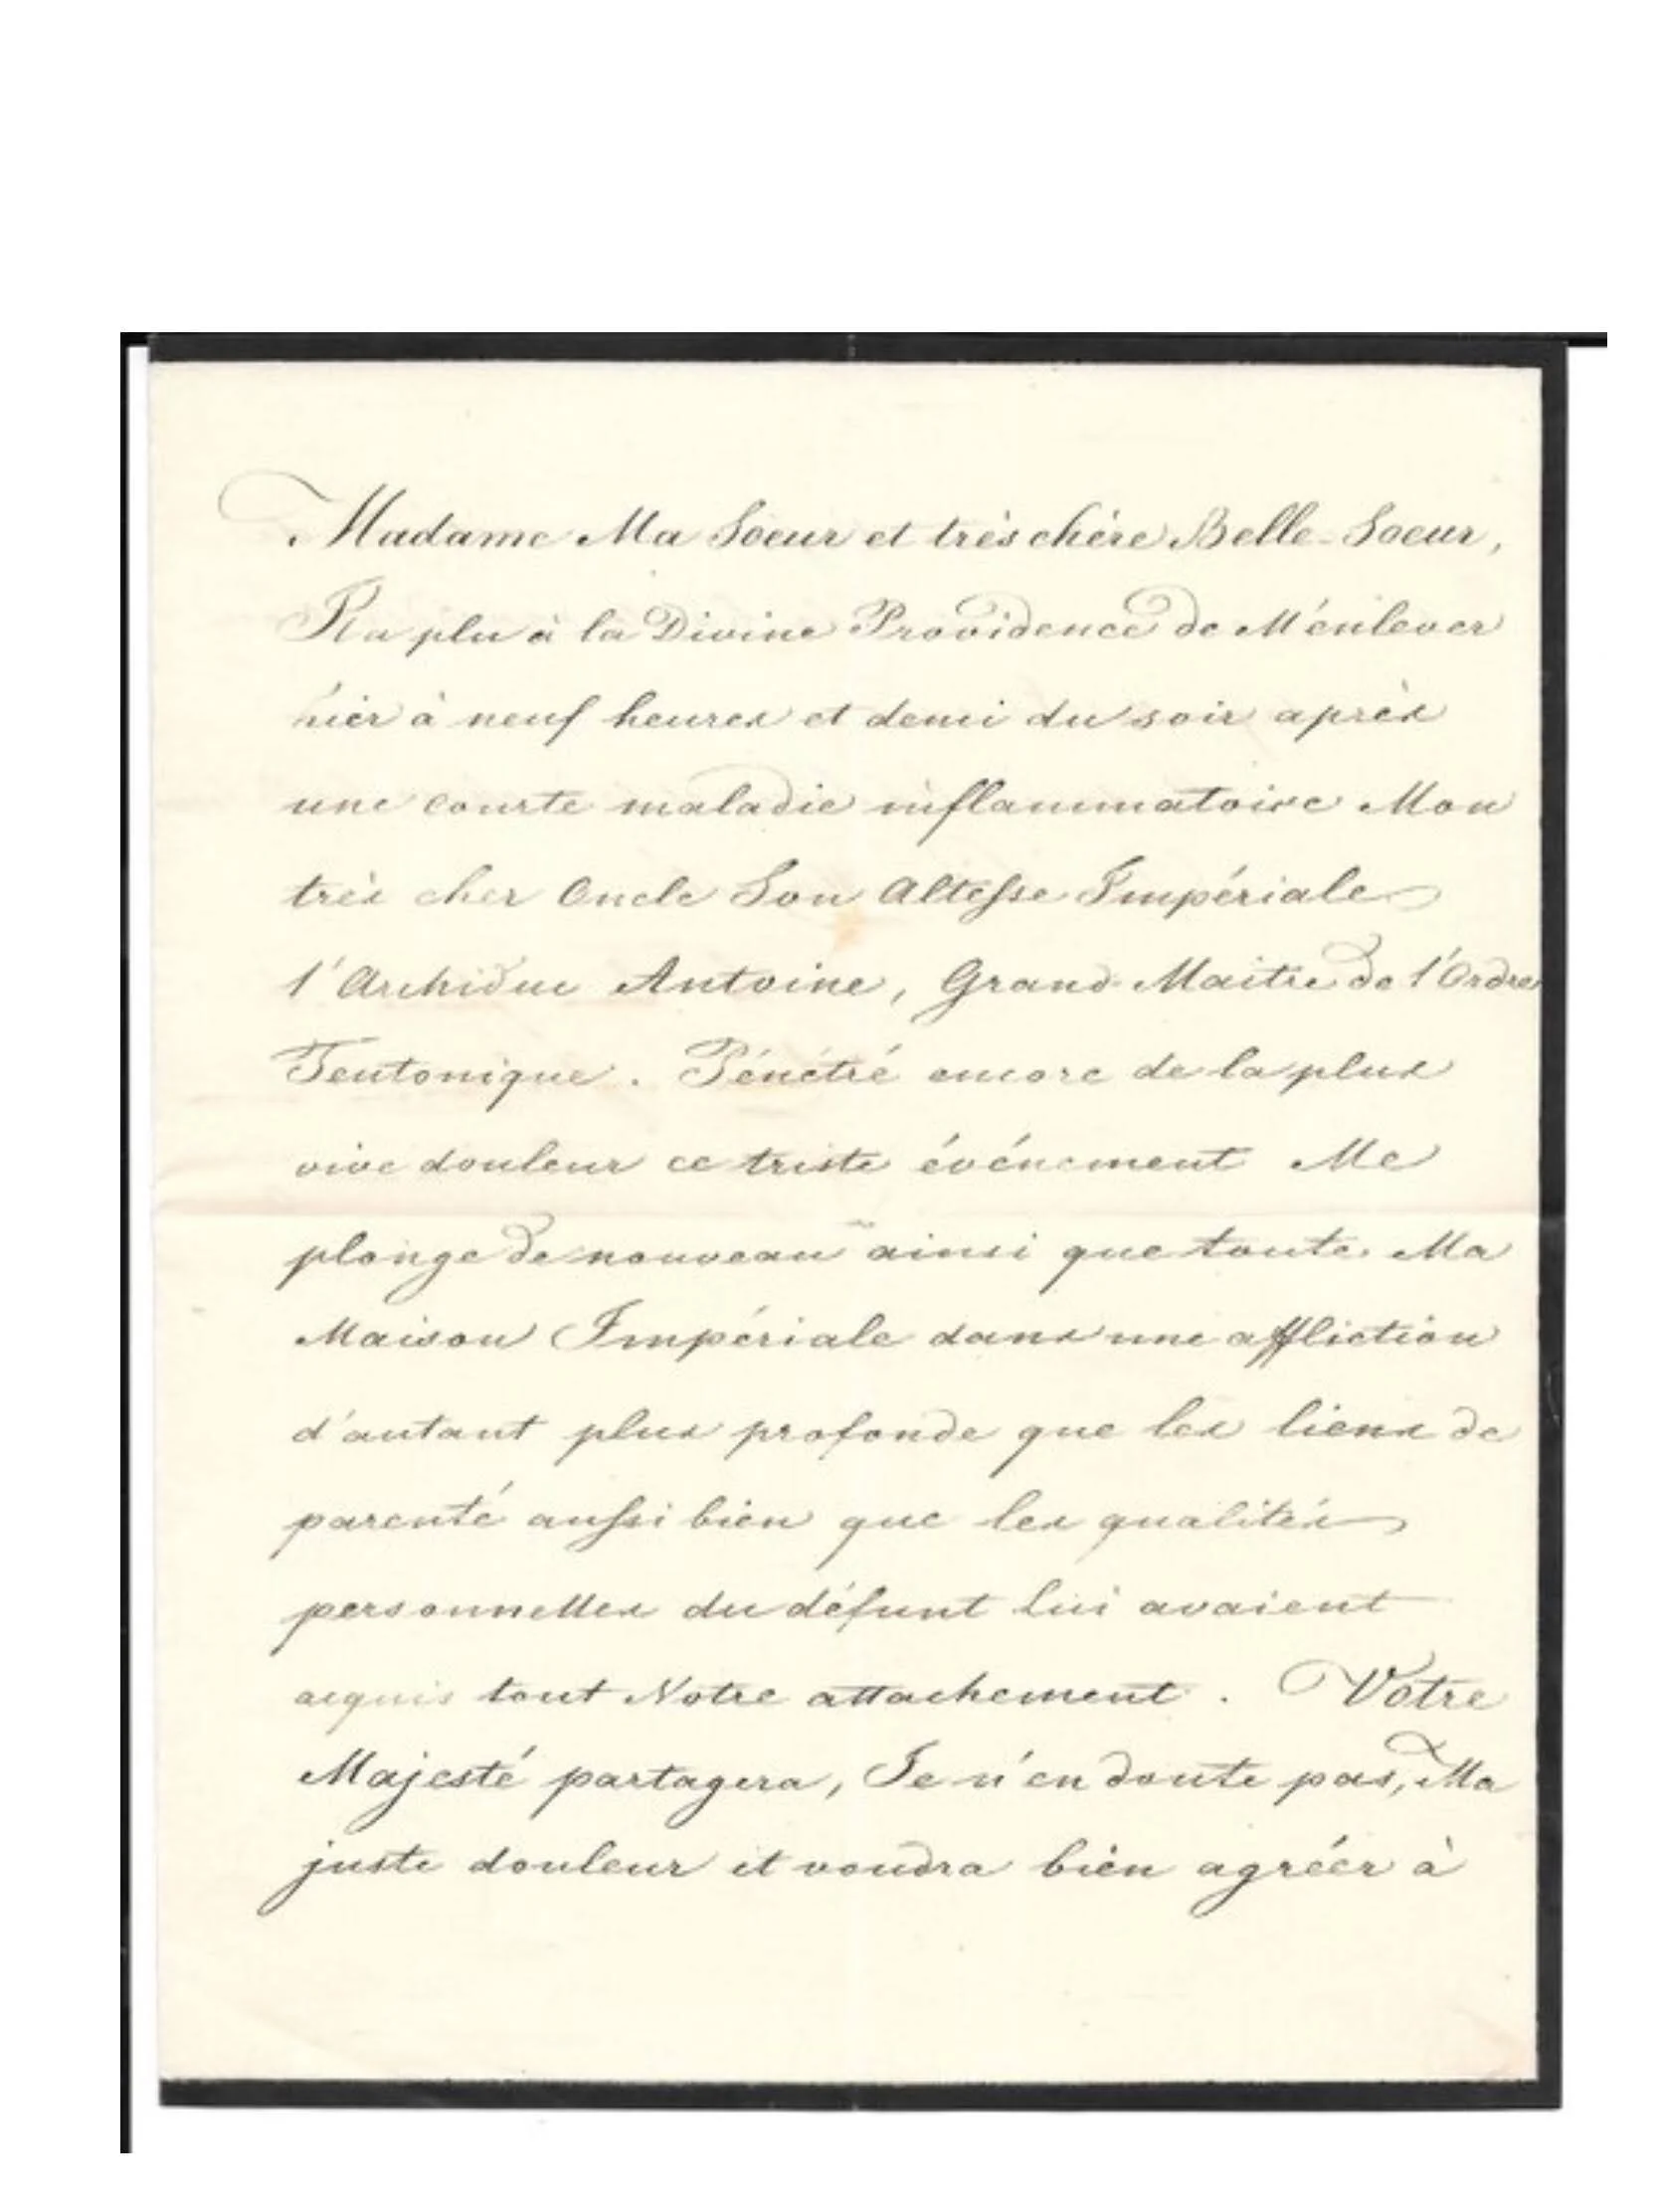 Madame Ma Soeur et très chère Belle-Soeur,
Il a plu à la Divine Providence de M'enlever
hier à neuf heures et demi du soir après
une courte maladie inflammatoire Mon
très cher Oncle Son Altesse Impériale
l'Archiduc Antoine, Grand-Maitre de l'Ordre
Teutonique. Pénétré encore de la plus
vive douleur ce triste événement Me
plonge de nouveau ainsi que toute Ma
Maison Impériale dans une affliction
d'autant plus profonde que les liens de
parenté aussi bien que les qualités
personnelles du défunt lui avaient
acquis tout Notre attachement. Votre
Majesté partagera, Je n'en doute pas, Ma
juste douleur et voudra bien agréér à